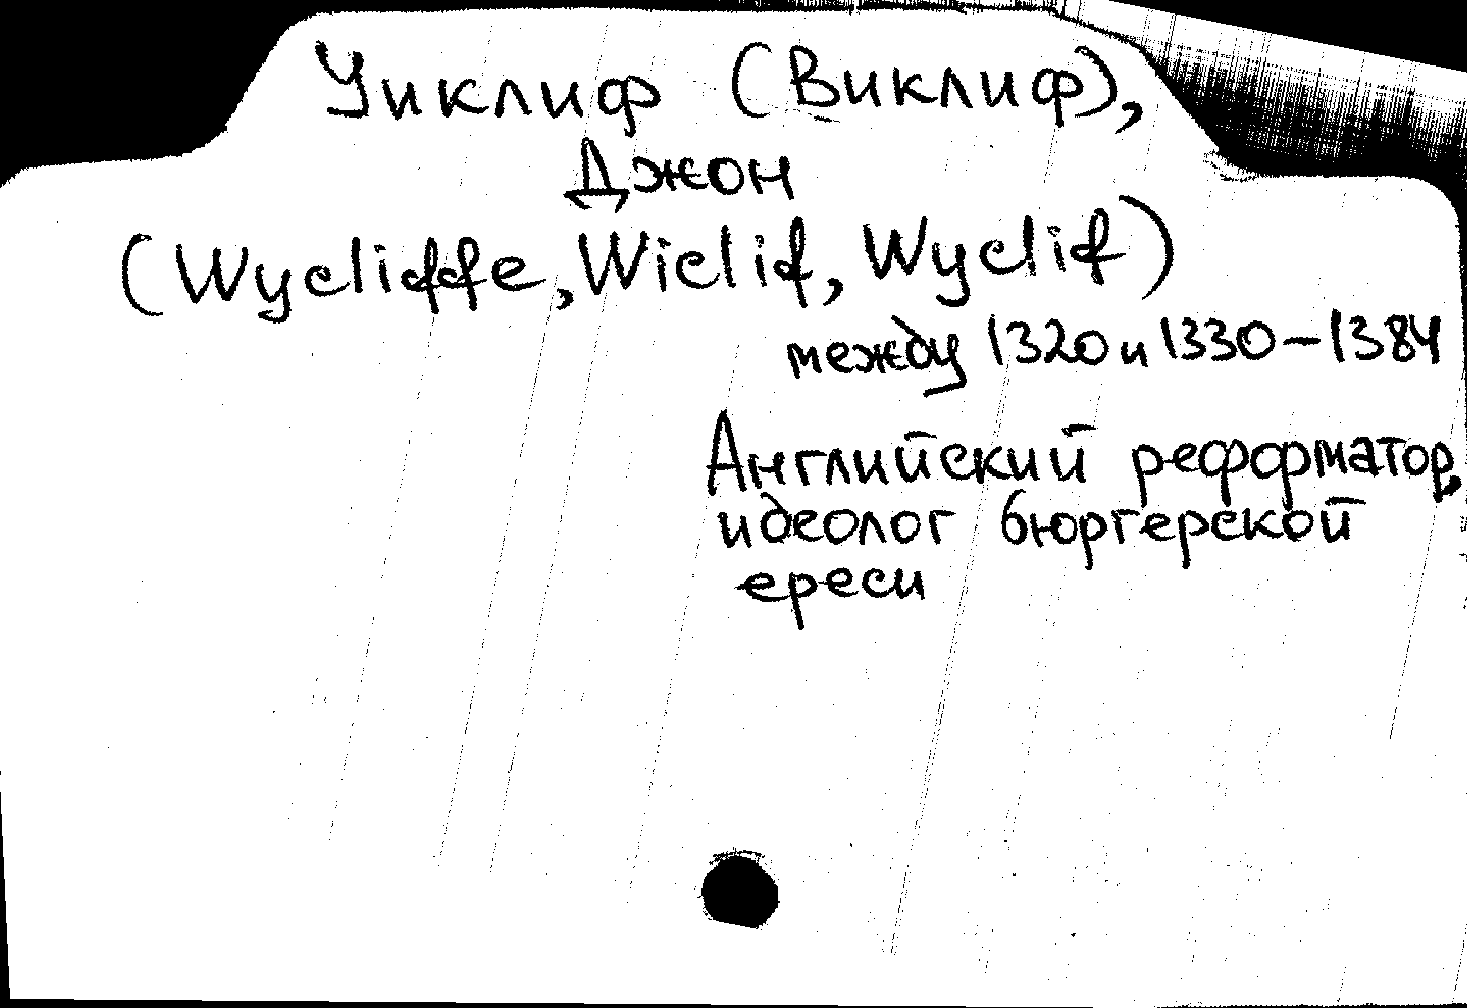 Уиклиф (Виклиф),
Джон
(Wycliffe, Wiclif, Wyclif)
между 1320 и 1330–1384
Английский реформатор,
идеолог бюргерской
ереси